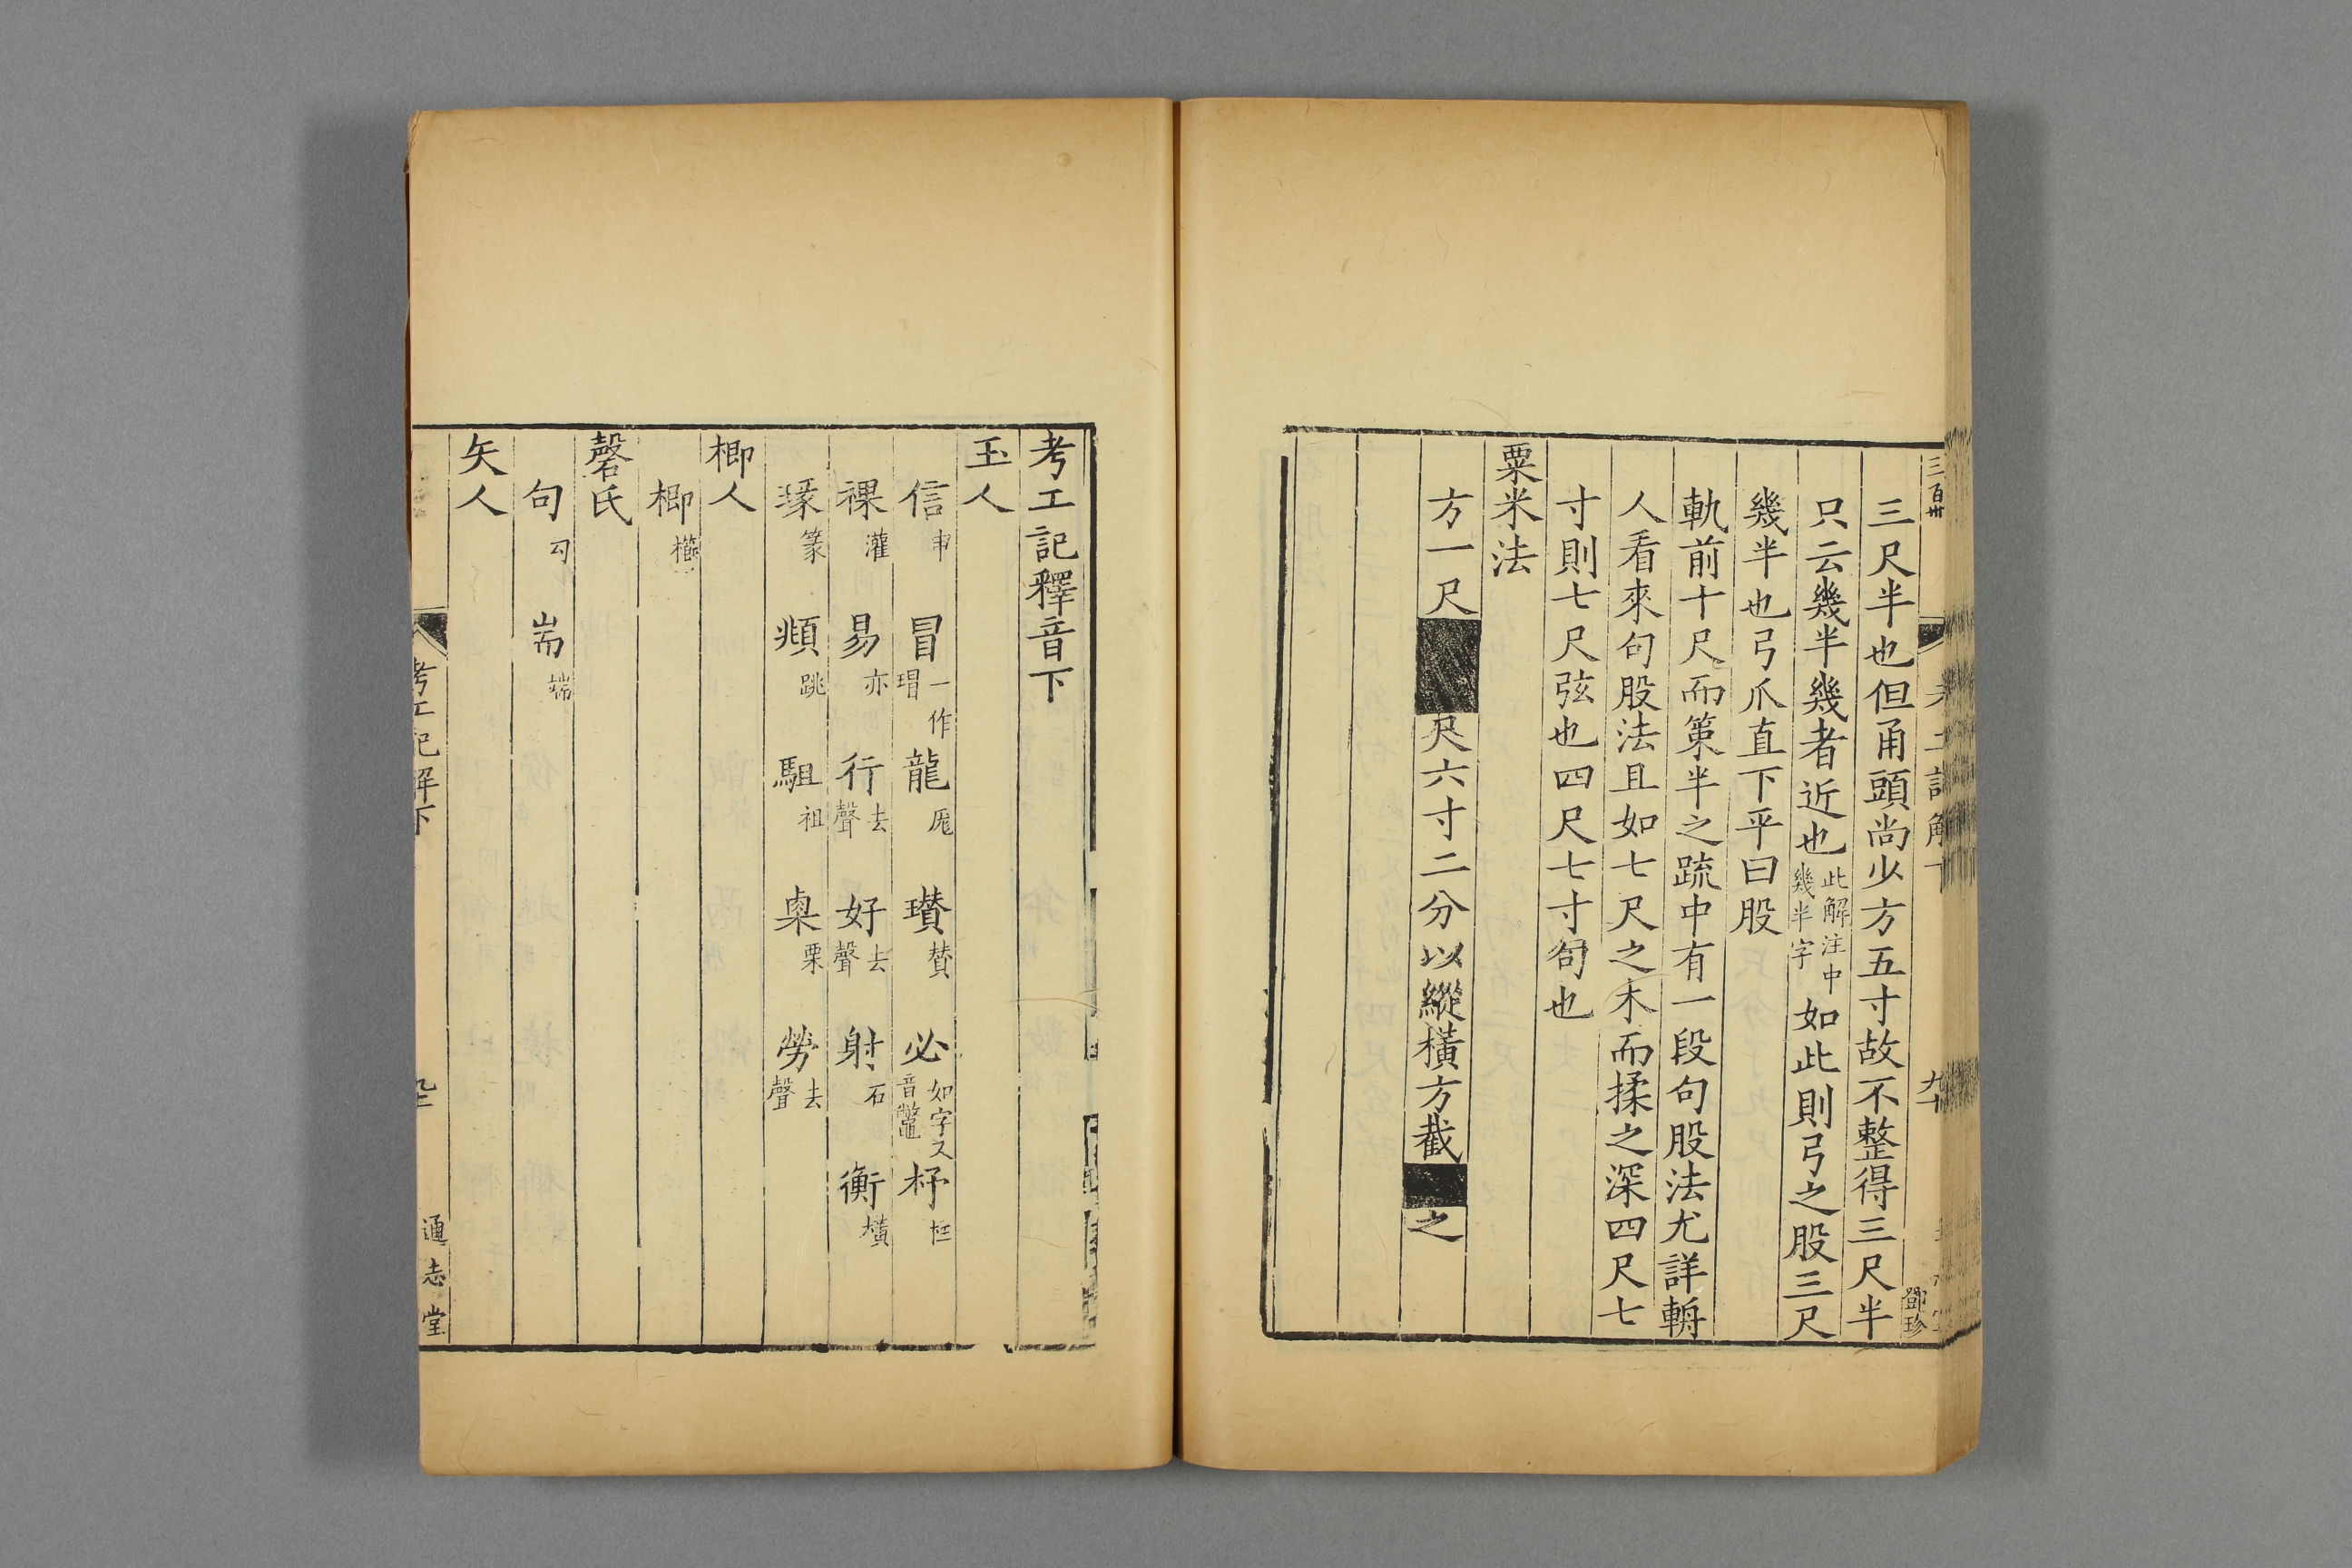 三尺半也但甬頭尚少方五寸故不整得三尺半
只云幾半幾者近也此解注中幾半字如此則弓之股三尺
幾半也弓爪直下平曰股
軌前十尺而策半之疏中有一段句股法尤詳輈
人看來句股法且如七尺之木而揉之深四尺七
寸則七尺弦也四尺七寸句也
粟米法
方一尺
尺六寸二分以縱橫方截
之
鄧珍
考工記釋音下
玉人
信申 冒一作瑁 龍厖 瓚贊 必如字又音鼈 杼
祼灌 易亦 行去聲 好去聲 射石 衡橫
瑑篆 頫跳 駔祖 㮚栗 勞去聲
楖人
楖櫛
磬氏
句勾 耑端
矢人
考工記解下
通志堂